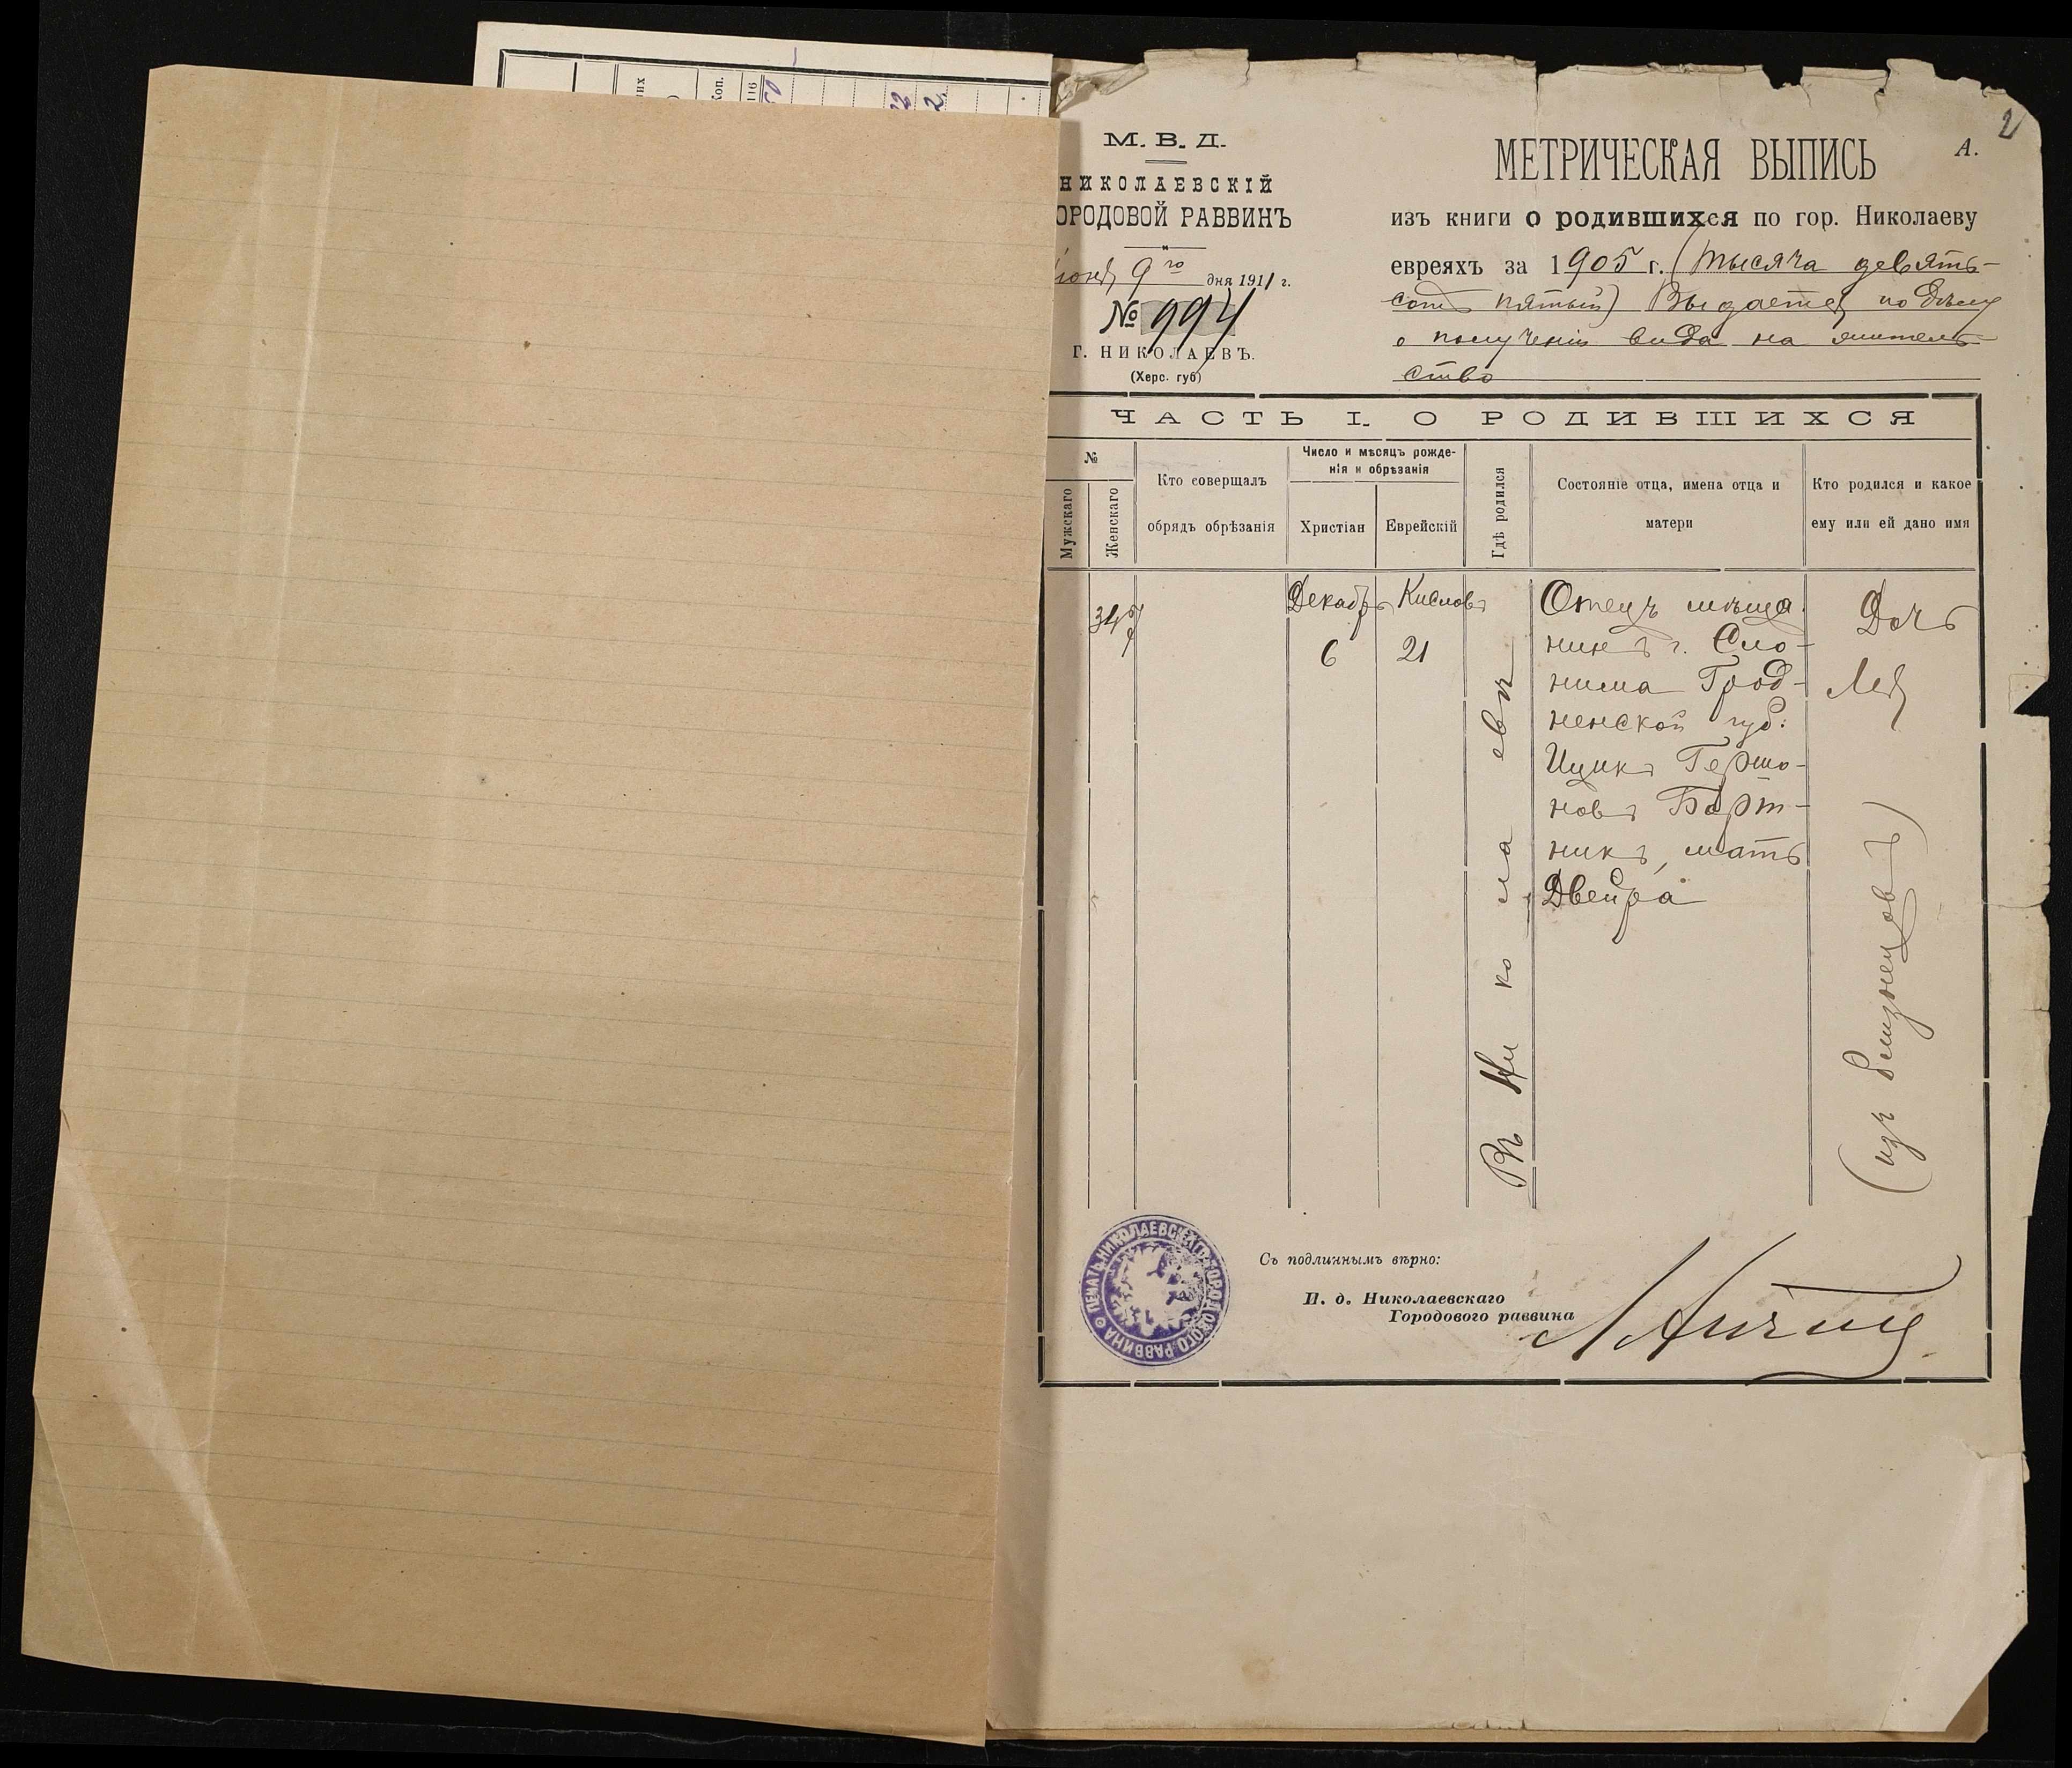 2
А.
М. В. Д.
НИКОЛАЕВСКІЙ
ОРОДОВОЙ РАВВИНЪ
9го дня 1911 г.
№ 994
Г. НИКОЛАЕВЪ.
(Херс. губ)
МЕТРИЧЕСКАЯ ВЫПИСЬ
изъ книги о родившихся по гор. Николаеву
евреяхъ за 1905 г. (тысяча девять-
сотъ пятый) Выдается по дѣлу
о полученіи вида на житель-
ство
ЧАСТЬ I. О РОДИВШИХСЯ
№
Мужскаго
Женскаго
Кто совершалъ
обрядъ обрѣзанія
Число и мѣсяцъ рожде-
нія и обрѣзанія
Христіан
Еврейскій
Гдѣ родился
Состояніе отца, имена отца и
матери
Кто родился и какое
ему или ей дано имя
Декабрь
6
Кислевъ
21
Въ Николаевѣ
Отецъ мѣща-
нинъ г. Сло-
нима Грод-
ненской губ:
Ицикъ Гершо-
новъ Борт-
никъ, мать
Двейра
Дочь
Лея
(изъ близнецовъ)
ПЕЧАТЬ НИКОЛАЕВСКАГО ГОРОДОВОГО РАВВИНА
Съ подлиннымъ вѣрно:
И. д. Николаевскаго
Городового раввина